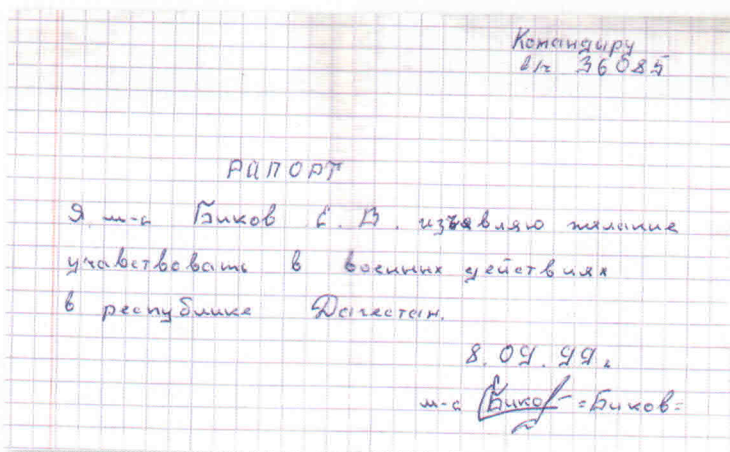 Командиру
в/ч 36085
РАПОРТ
Я м-с Биков С. В. изъявляю желание
учавствовать в военных действиях
в республике Дагестан.
8.09.99г.
м-с Биков =Биков=